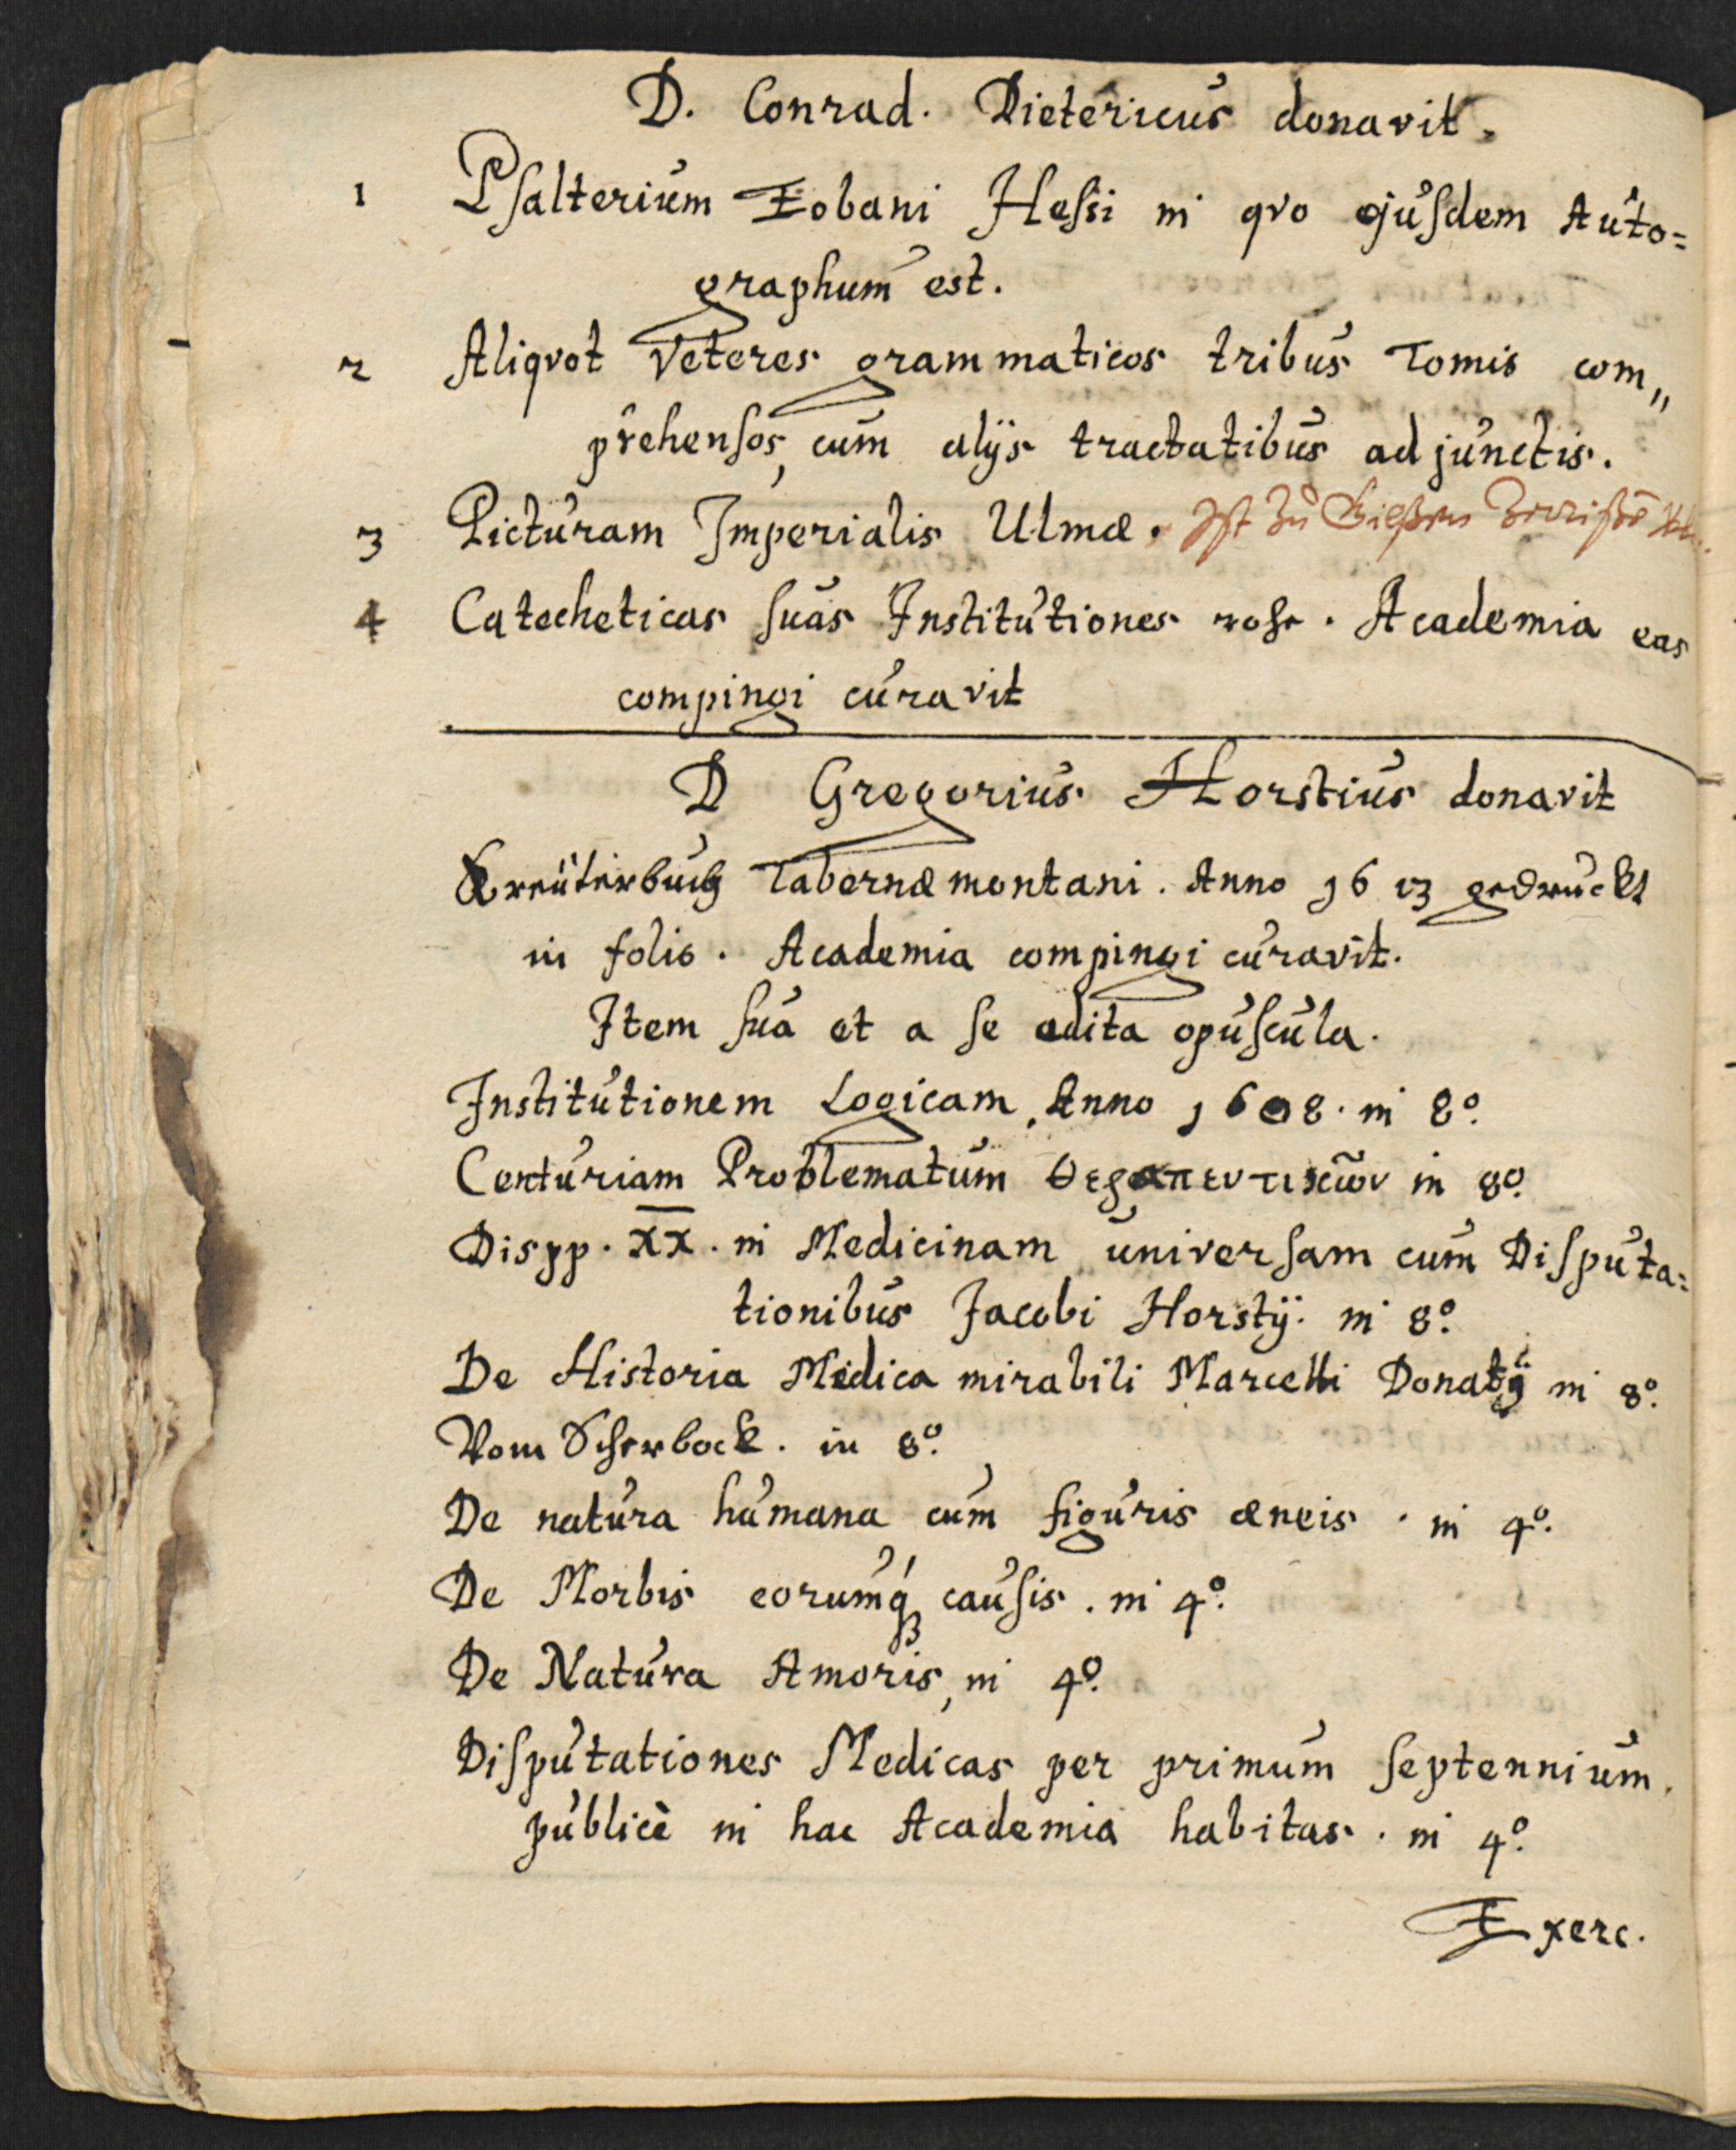 D. Conrad. Dietericus donavit.
1 Psalterium Eobani Hessi in qvo ejusdem Auto=
graphum est.
2 Aliqvot Veteres grammaticos tribus Tomis com„
prehensos, cum alijs tractatibus adjunctis.
3 Picturam Imperialis Ulmæ. Ist zu Gießen zerrißē
4 Catecheticas suas Institutiones . Academia eas
compingi curavit
D Gregorius Horstius donavit
Kreüterbuch Tabernæmontani. Anno 1613 gedruckt
in folio. Academia compingi curavit.
Item sua et a se edita opuscula.
Institutionem Logicam, Anno 1608. in 8°.
Centuriam Problematum θεραπευτικῶν in 8°.
Dispp. XX. in Medicinam universam cum Disputa=
tionibus Jacobi Horstij. in 8°.
De Historia Medica mirabili Marcelli Donatij in 8°.
Vom Scherbock. in 8°.
De natura humana cum figuris æneis. in 4°.
De Morbis eorumq́ causis. in 4°.
De Natura Amoris, in 4°.
Disputationes Medicas per primum septennium
publicè in hac Academia habitas. in 4°.
Exerc.